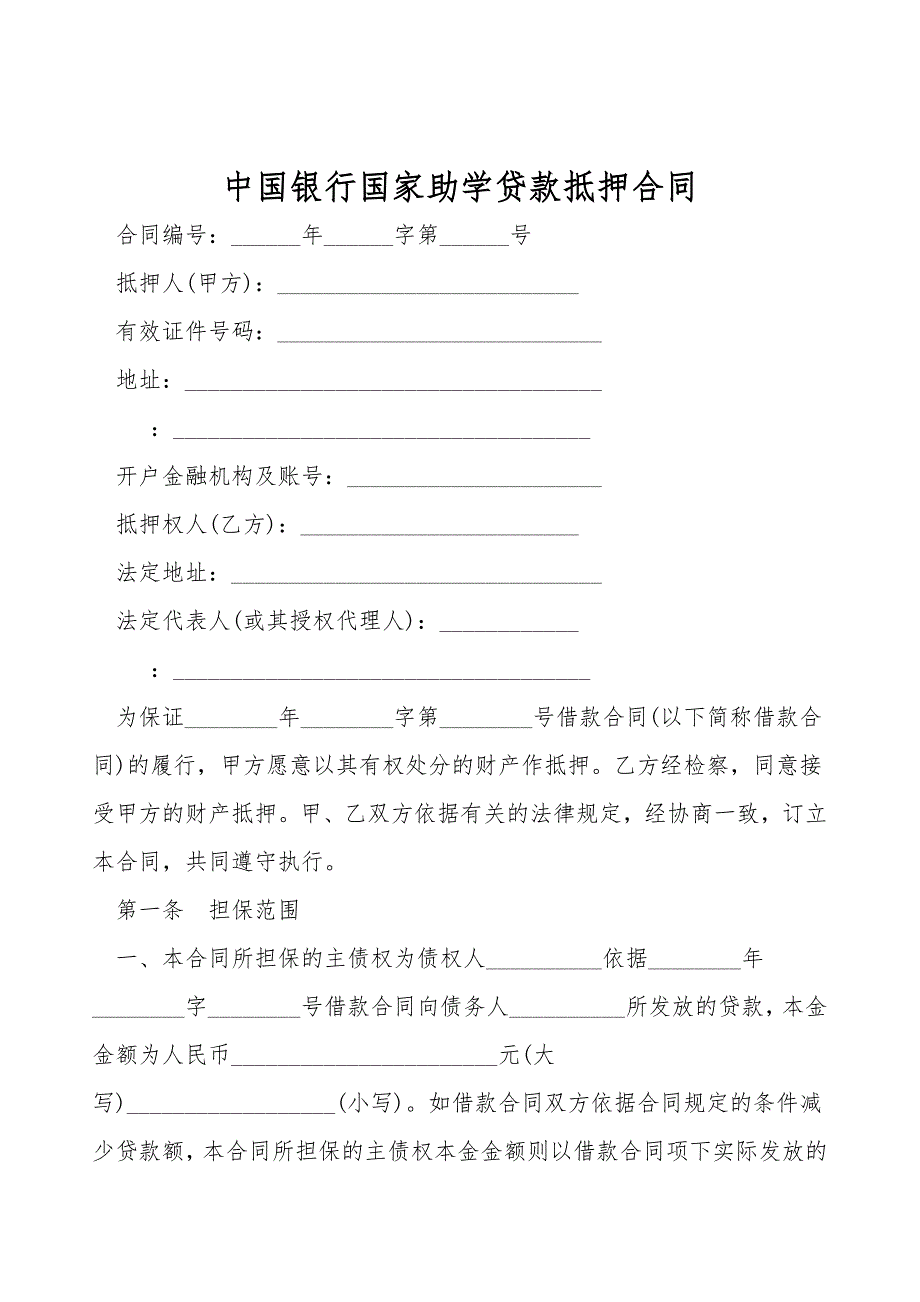 中国银行国家助学贷款抵押合同
合同编号：______年______字第______号
抵押人(甲方)：__________________________
有效证件号码：____________________________
地址：____________________________________
：____________________________________
开户金融机构及账号：______________________
抵押权人(乙方)：________________________
法定地址：________________________________
法定代表人(或其授权代理人)：____________
：____________________________________
为保证________年________字第________号借款合同(以下简称借款合
同)的履行，甲方愿意以其有权处分的财产作抵押。乙方经检察，同意接
受甲方的财产抵押。甲、乙双方依据有关的法律规定，经协商一致，订立
本合同，共同遵守执行。
第一条　担保范围
一、本合同所担保的主债权为债权人__________依据________年
________字________号借款合同向债务人__________所发放的贷款，本金
金额为人民币_______________________元(大
写)__________________(小写)。如借款合同双方依据合同规定的条件减
少贷款额，本合同所担保的主债权本金金额则以借款合同项下实际发放的